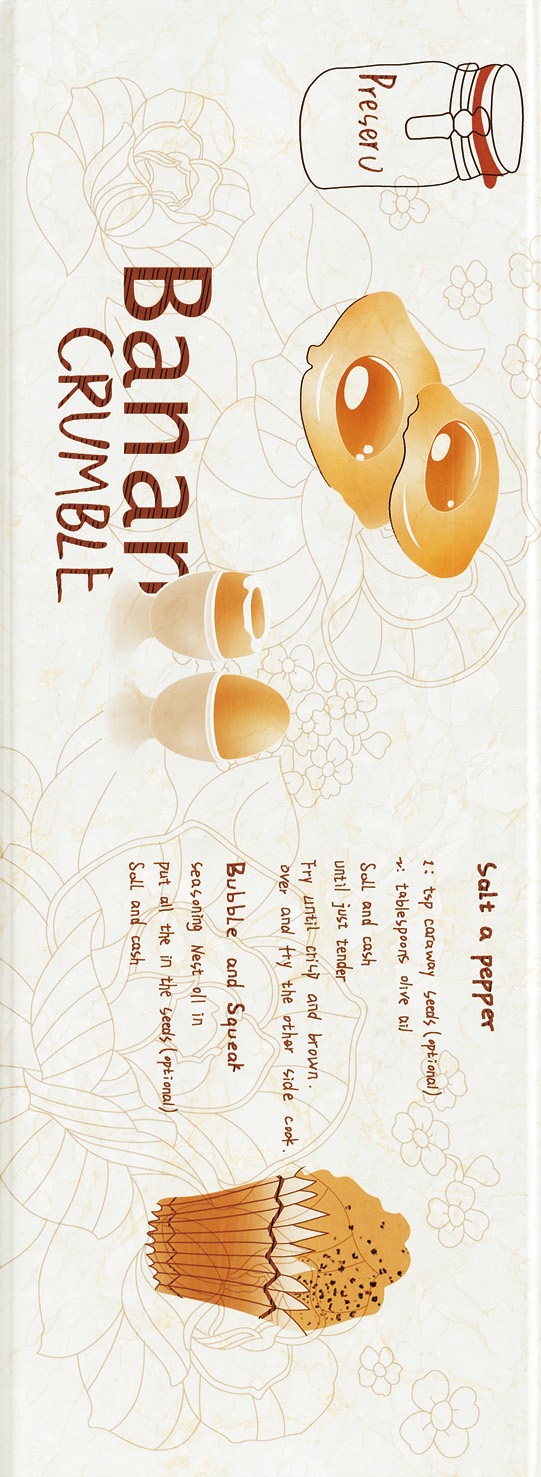 Preserv
Banan
CRUMBLE
Salt a pepper
1: tsp caraway seeds (optional)
2: tablespoons olive oil
Sall and cash
until just tender
Fry until crisy and brown.
over and fry the other side cook.
Bubble and Squeak
seasoning Nest oll in
put all the in the seeds (optional)
Sall and cash